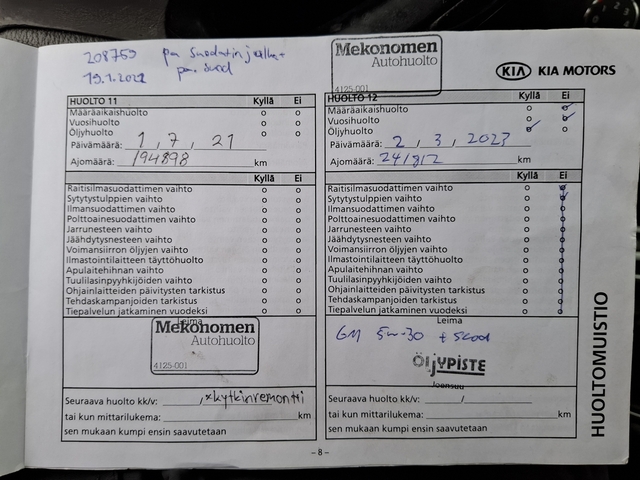 208759
19.1.2022
pa suod
Mekonomen
Autohuolto
4125-001
KIA KIA MOTORS
HUOLTO 11 Kyllä Ei
Määräaikaishuolto o o
Vuosihuolto o o
Öljyhuolto o o
Päivämäärä: 1, 7, 21
Ajomäärä: 194898 km
Kyllä Ei
Raitisilmasuodattimen vaihto o o
Sytytystulppien vaihto o o
Ilmansuodattimen vaihto o o
Polttoainesuodattimen vaihto o o
Jarrunesteen vaihto o o
Jäähdytysnesteen vaihto o o
Voimansiirron öljyjen vaihto o o
Ilmastointilaitteen täyttöhuolto o o
Apulaitehihnan vaihto o o
Tuulilasinpyyhkijöiden vaihto o o
Ohjainlaitteiden päivitysten tarkistus o o
Tehdaskampanjoiden tarkistus o o
Tiepalvelun jatkaminen vuodeksi o o
Leima
Mekonomen
Autohuolto
4125-001
Seuraava huolto kk/v: , *kytkinremontti
tai kun mittarilukema: km
sen mukaan kumpi ensin saavutetaan
HUOLTO 12 Kyllä Ei
Määräaikaishuolto o o
Vuosihuolto o o
Öljyhuolto o o
Päivämäärä: 2, 3, 2023
Ajomäärä: 241812 km
Kyllä Ei
Raitisilmasuodattimen vaihto o o
Sytytystulppien vaihto o o
Ilmansuodattimen vaihto o o
Polttoainesuodattimen vaihto o o
Jarrunesteen vaihto o o
Jäähdytysnesteen vaihto o o
Voimansiirron öljyjen vaihto o o
Ilmastointilaitteen täyttöhuolto o o
Apulaitehihnan vaihto o o
Tuulilasinpyyhkijöiden vaihto o o
Ohjainlaitteiden päivitysten tarkistus o o
Tehdaskampanjoiden tarkistus o o
Tiepalvelun jatkaminen vuodeksi o o
Leima
GM 5w-30 + suod
ÖljYPISTE
Joensuu
Seuraava huolto kk/v: /
tai kun mittarilukema: km
sen mukaan kumpi ensin saavutetaan
HUOLTOMUISTIO
– 8 –